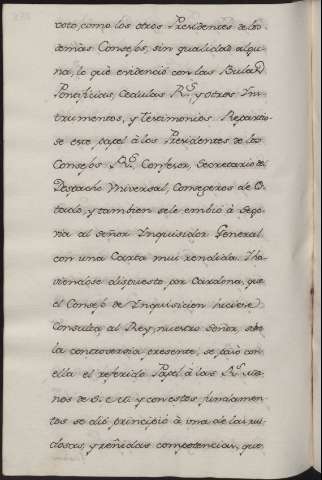 voto, como los otros Presidentes de los
demas Consejos, sin qualidad algu-
na, lo que evidenció con las Bulas
Pontificias, Cedulas R.s y otros Yns-
trumentos, y testimonios. Repartio-
se este papel à los Presidentes de los
Consejos R.s, Confesor, Secretario del
Despacho Vniversal, Consegeros de Es-
tado, y tambien se le embió à Sego-
via al Señor Ynquisidor General
con una Carta mui rendida. Y ha-
viendose dispuesto por Cardona, que
el Consejo de Ynquisicion hiciese
Consulta al Rey nuestro Señor, sobre
la controversia presente, se pasó con
ella el referido Papel à las R.s ma-
nos de S. M. y con estos fundamen-
tos se dió principio à una de las rui-
dosas, y reñidas competencias, que